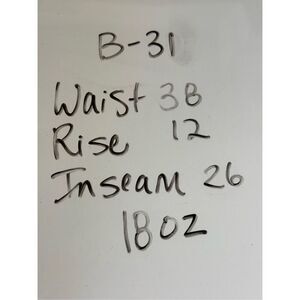 B-31
Waist 38
Rise 12
Inseam 26
18oz